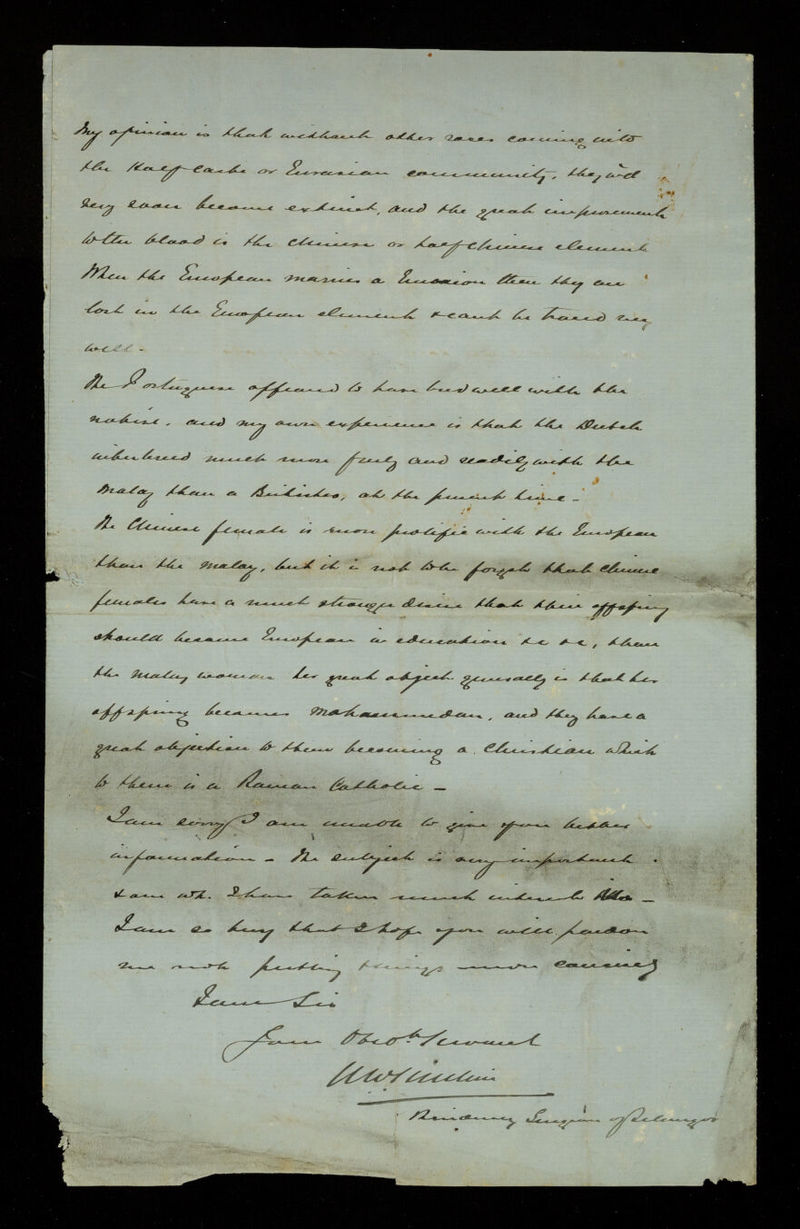 My opinion is that without other races coming into
the Half caste or Eurasian community, they wd
very soon become extinct, and the great improvement
to the blood is the Chinese or half Chinese element
When the European marries a Eurasion then they are
lost in the European element & cant be traced very
well -
The Portuguese appeared to have bred well with the
native, and my own experience is that the Dutch
interbreed much more freely and readily with the
Malay than a Britisher, at the present time -
The Chinese female is more prolific with the European
than the Malay, but it is not to be forgot that Chinese
females have a much stronger desire that their offspring
should become European in education &c &c, than
the Malay woman her great object generally is that her
offspring becomes Mahammedan, and they have a
great objection to them becoming a Christian which
to them is a Roman Catholic -
I am sorry I am unable to give you better
information - The subject is very important
& one wh. I have taken much interest in -
I am so busy that I hope you will pardon
me not putting things more concisely
I am Sir
Your Obedt Servant
Residency Surgeon of Selangor